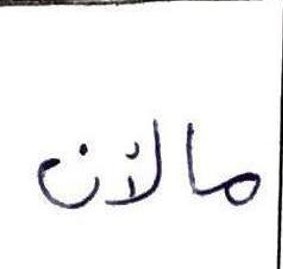 مالأن